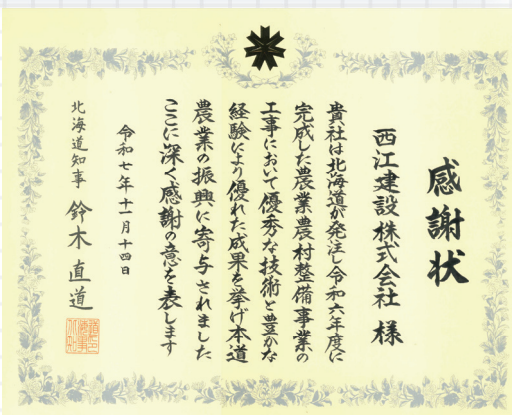 感謝状
西江建設株式会社 様
貴社は北海道が発注し令和六年度に
完成した農業農村整備事業の
工事において優秀な技術と豊かな
経験により優れた成果を挙げ本道
農業の振興に寄与されました
ここに深く感謝の意を表します
令和七年十一月十四日
北海道知事 鈴木直道